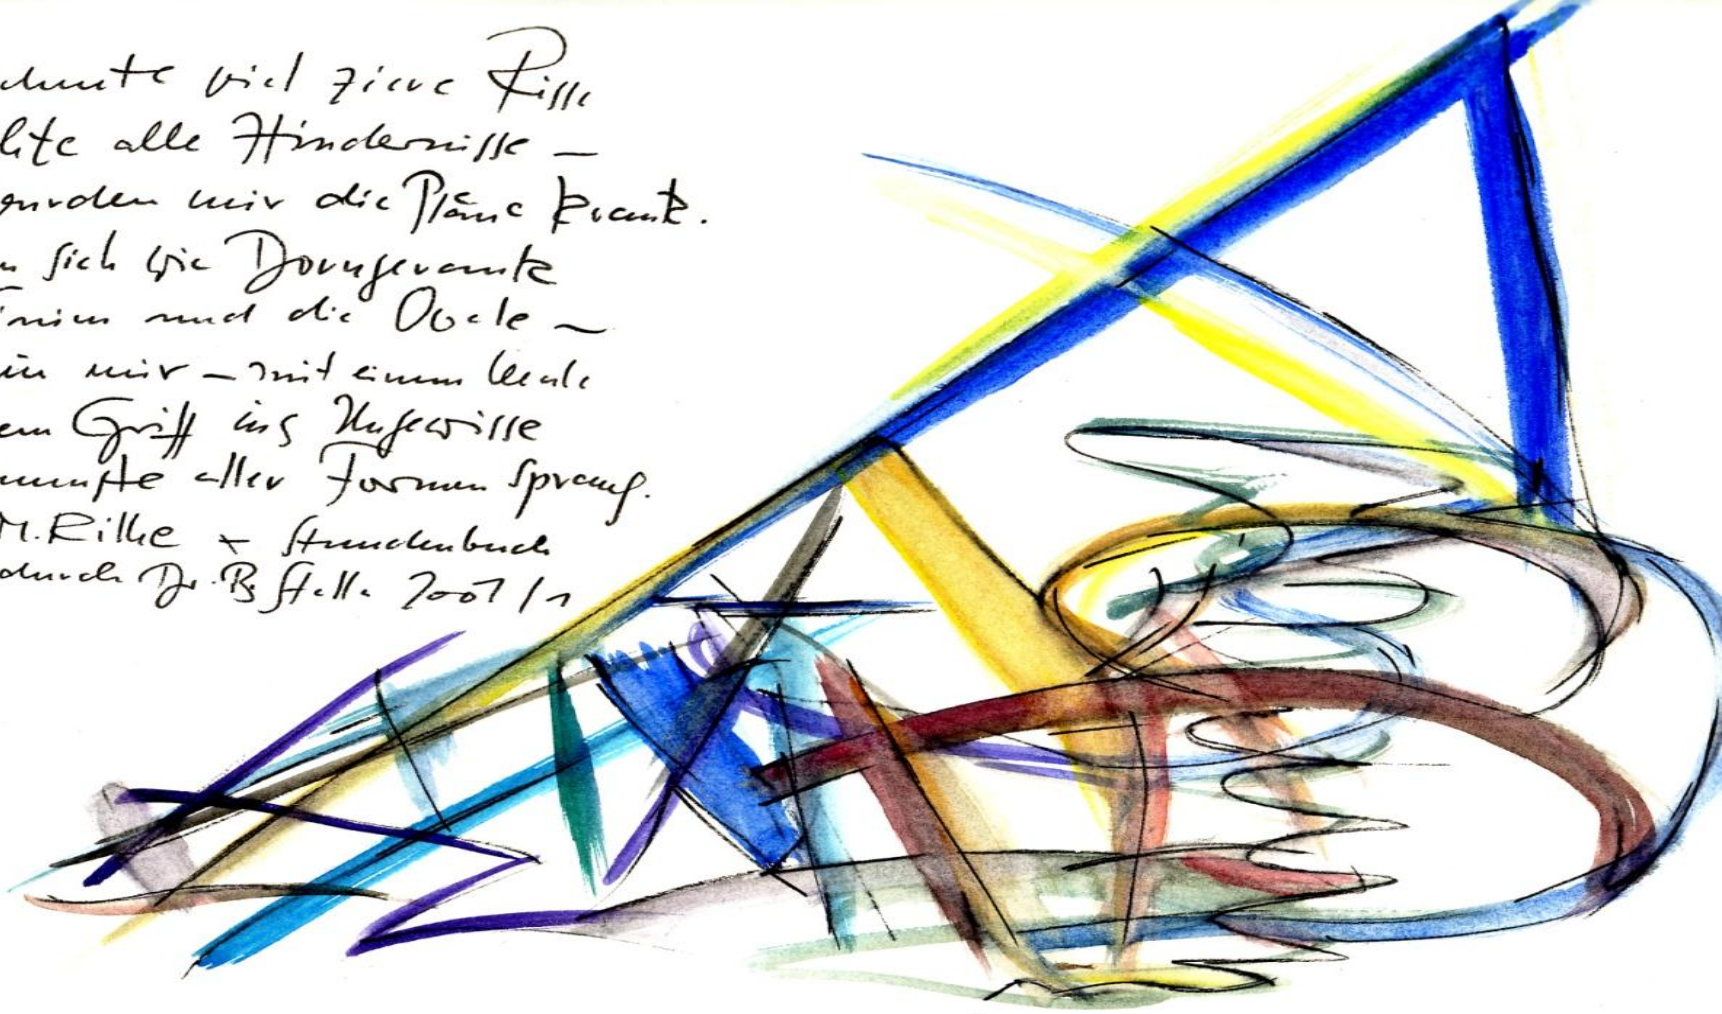 viel ziere Risse
alle Hindernisse –
wurden mir die Pläne krank.
sich wie Dorngerank
und die Ovale –
in mir – mit einem Male
Griff ins Ungewisse
aller Formen sprang.
M. Rilke + Stundenbuch
durch Dr. B. Stella 2001/1